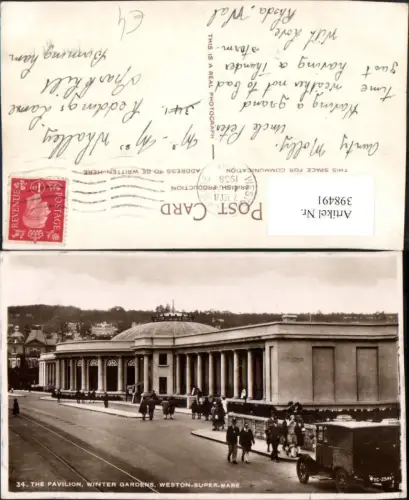 E4
Aunty Molly.
Uncle Peter
Having a grand
time weather not to bad
just having a thunder
storm.
With Love
Rhoda, Wal
THIS IS A REAL PHOTOGRAPH
POST CARD
BRITISH PRODUCTION
THIS SPACE FOR COMMUNICATION
ADDRESS TO BE WRITTEN HERE
1938
Mr Mrs Whalley,
341
Reddings Lane
Sparkhill
Birmingham
POSTAGE
REVENUE
Artikel Nr.
398491
34. THE PAVILION, WINTER GARDENS, WESTON-SUPER-MARE.